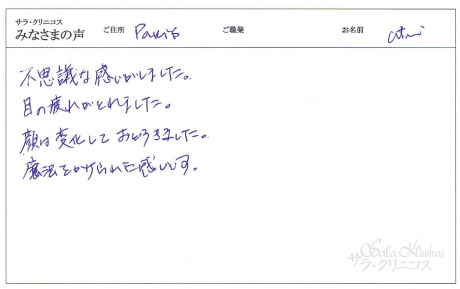 サラ・クリニコス
みなさまの声 ご住所 Paris ご職業 お名前
不思議な感じがしました。
目の疲れがとれました。
顔は変化しておどろきました。
魔法をかけられた感じです。
Sala Klinikos
サラ・クリニコス